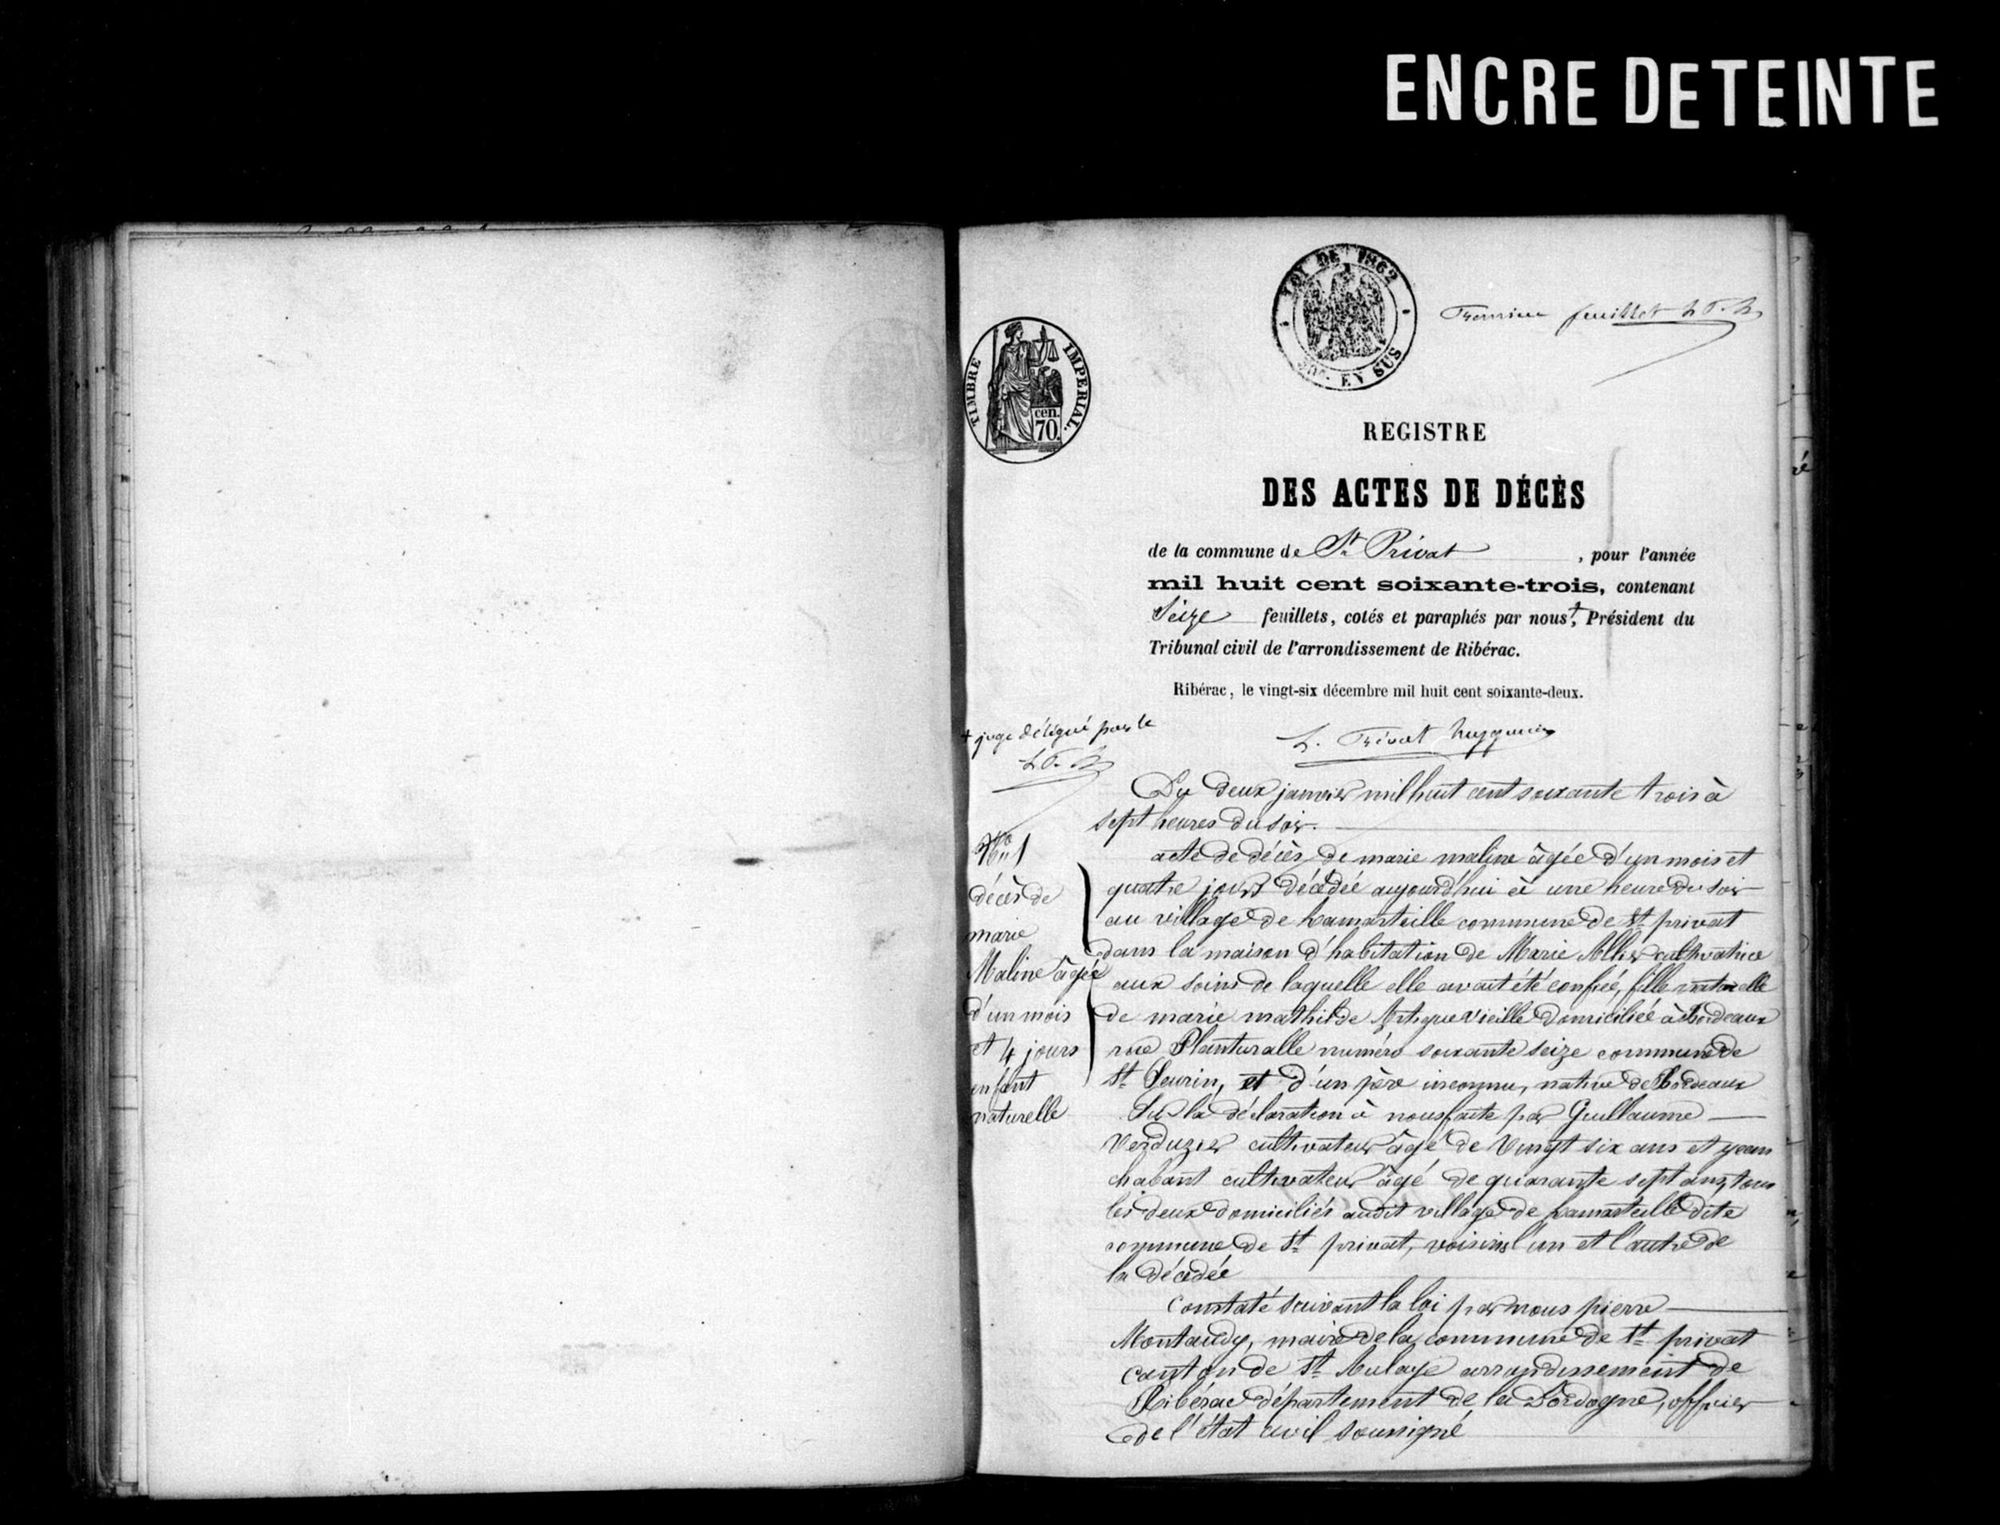 ENCRE DETEINTE
LOI DE 1862
EN SUS
feuillet
TIMBRE IMPERIAL.
cen.
70.
REGISTRE
DES ACTES DE DÉCÈS
de la commune de St Privat , pour l'année
mil huit cent soixante-trois, contenant
Seize feuillets, cotés et paraphés par nous +, Président du
Tribunal civil de l'arrondissement de Ribérac.
Ribérac, le vingt-six décembre mil huit cent soixante-deux.
+ juge délégué par le
Du deux janvier mil huit cent soixante trois à
sept heures du soir.
No 1
décès de
marie
Maline âgée
d'un mois
et 4 jours
enfant
naturelle
acte de décès de marie maline âgée d'un mois et
quatre jours décédée aujourd'hui à une heure du soir
au village de Lamarteille commune de St privat
dans la maison d'habitation de Marie Allier cultivatrice
aux soins de laquelle elle avait été confiée, fille naturelle
de marie mathilde Artiguevieille domiciliée à Bordeaux
rue Planturalle numéro soixante seize commune de
St Seurin, et d'un père inconnu, native de Bordeaux
Sur la déclaration à nous faite par Guillaume
Verduzier cultivateur âgé de vingt six ans et jean
chabant cultivateur âgé de quarante sept ans, tous
les deux domiciliés audit village de Lamarteille dite
commune de St privat, voisins l'un et l'autre de
la décédée
Constaté suivant la loi par nous pierre
Montaudy, maire de la commune de St privat
canton de St Aulaye arrondissement de
Ribérac département de la Dordogne, officier
de l'état civil soussigné